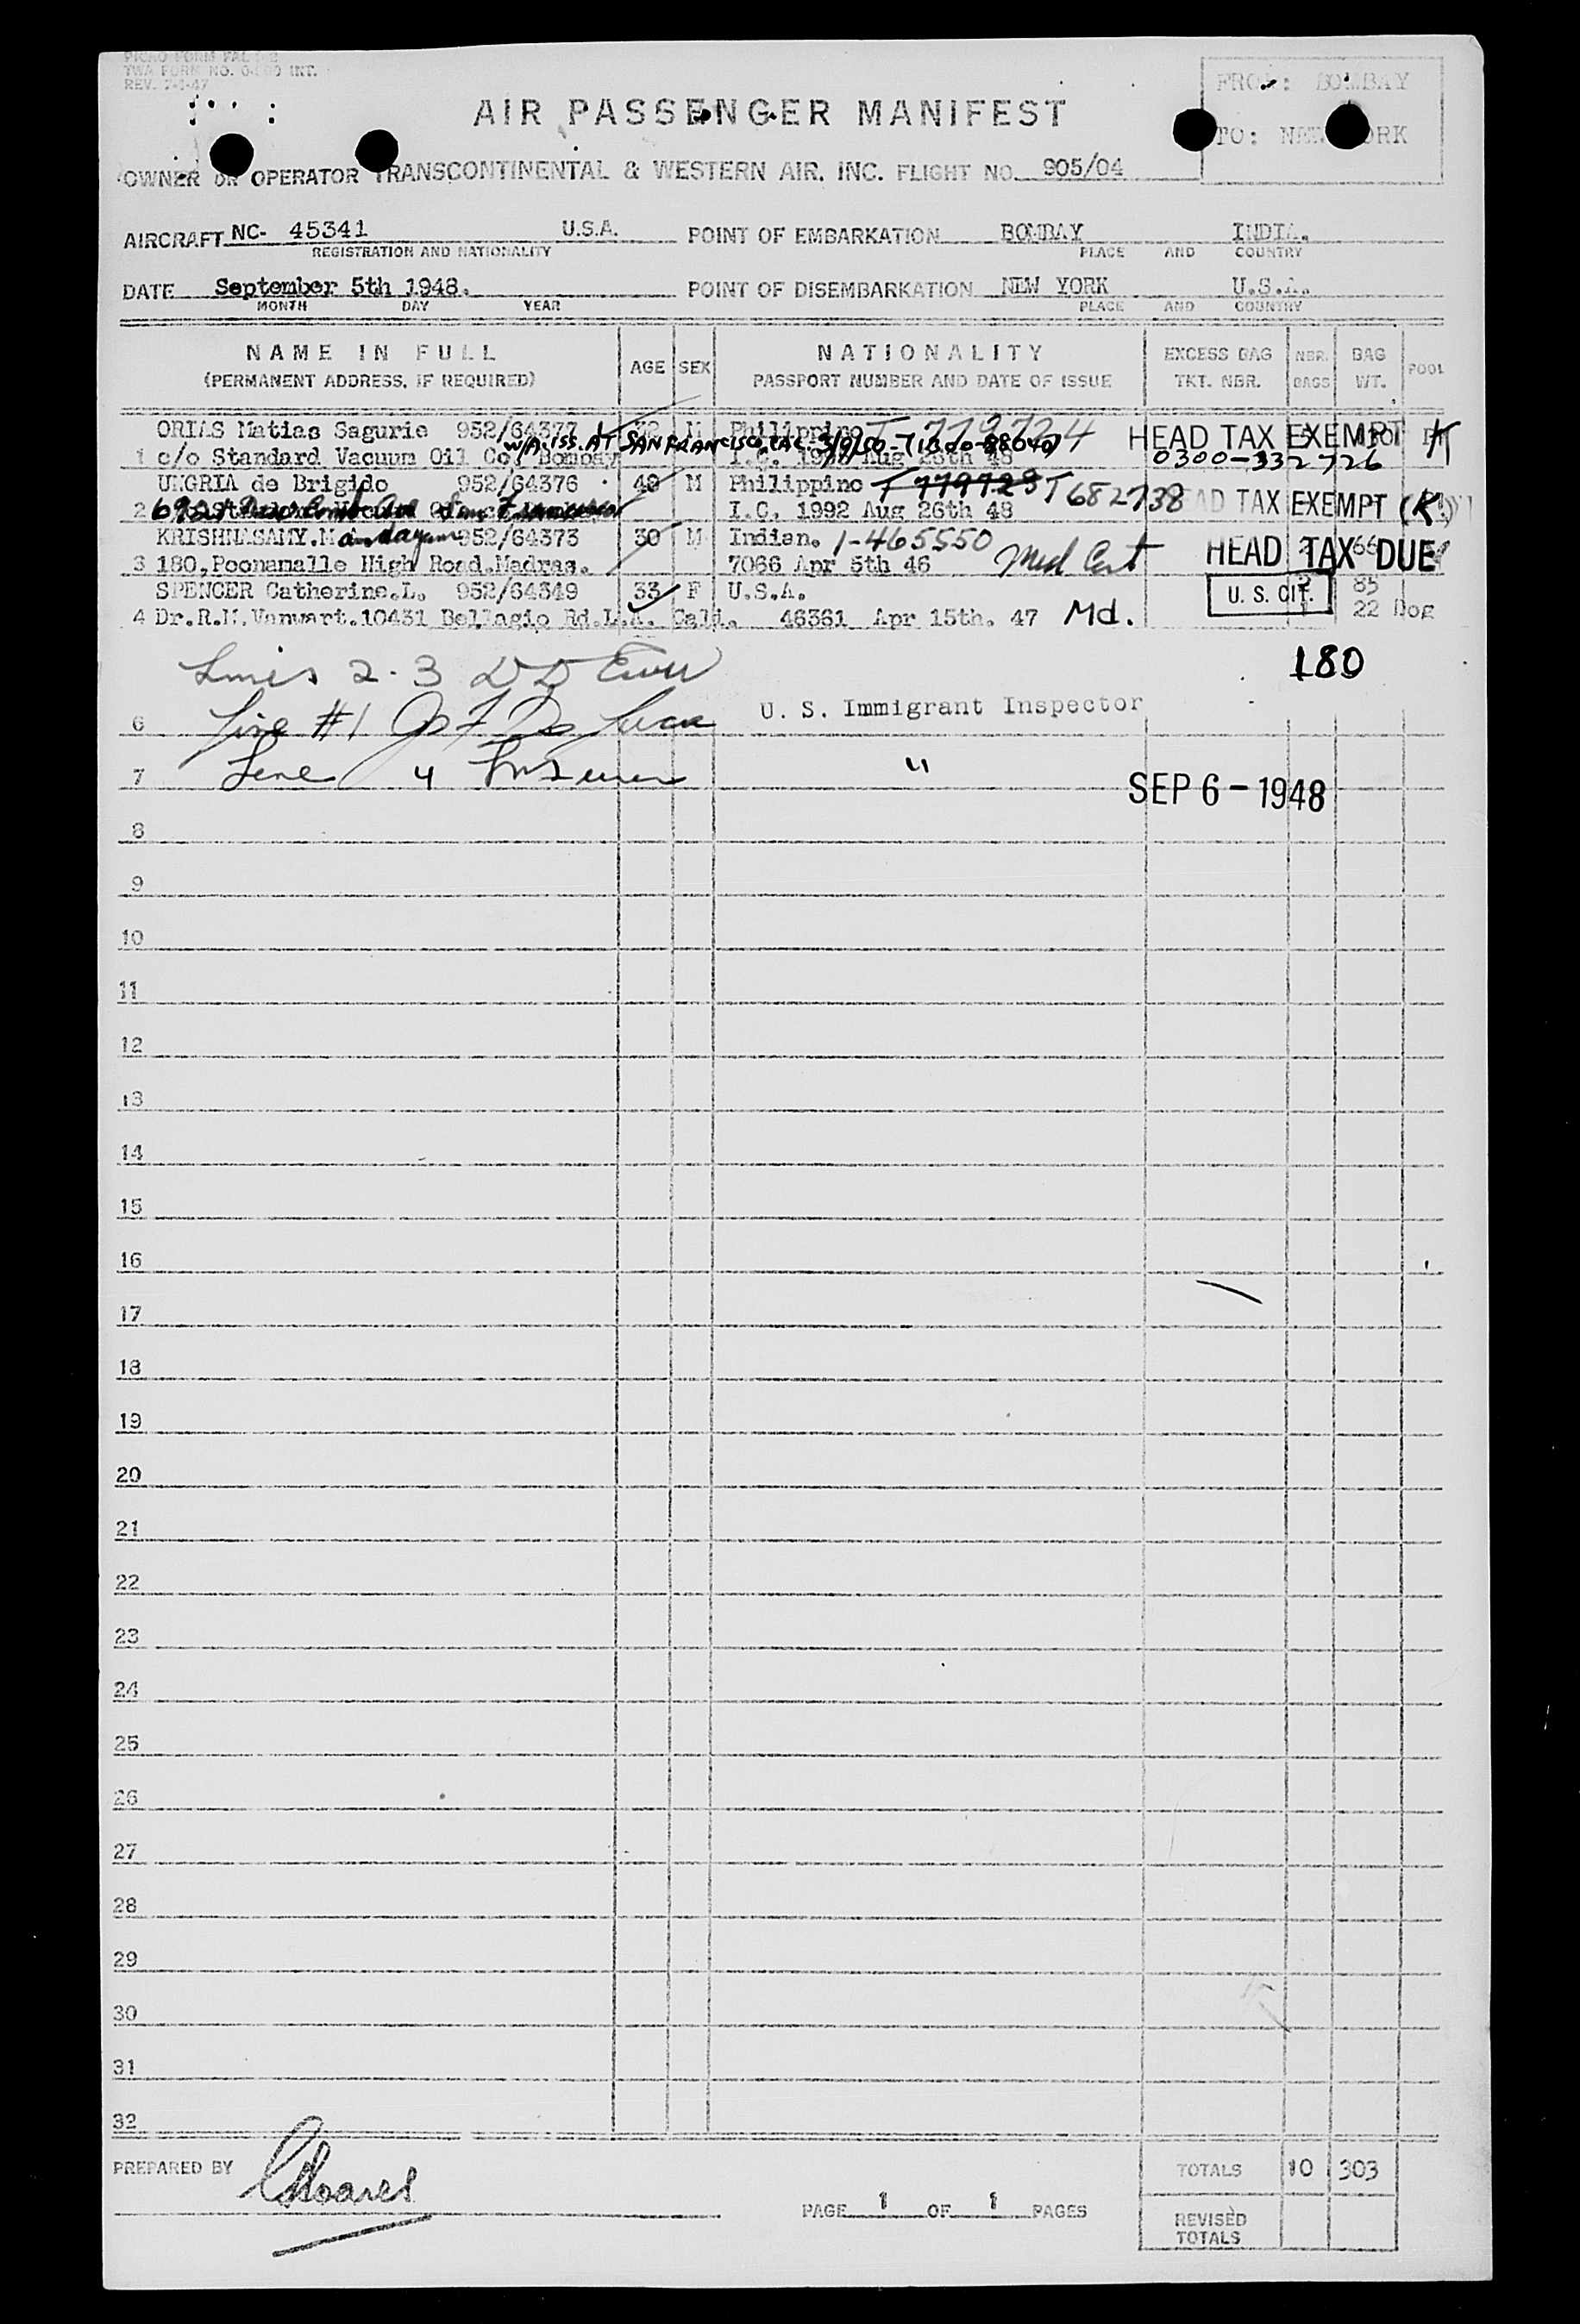 TWA FORM NO. INT.
REV. 7-1-47
FROM: BOMBAY
AIR PASSENGER MANIFEST
TO: NEW YORK
OWNER OR OPERATOR TRANSCONTINENTAL & WESTERN AIR, INC. FLIGHT NO. 905/04
AIRCRAFT NC- 45341 U.S.A. POINT OF EMBARKATION BOMBAY INDIA.
REGISTRATION AND NATIONALITY PLACE AND COUNTRY
DATE September 5th 1948. POINT OF DISEMBARKATION NEW YORK U.S.A.
MONTH DAY YEAR PLACE AND COUNTRY
NAME IN FULL AGE SEX NATIONALITY EXCESS BAG NBR. BAG POOL
(PERMANENT ADDRESS, IF REQUIRED) PASSPORT NUMBER AND DATE OF ISSUE TKT. NBR. BAGS WT.
ORIAS Matias Sagurie 952/64377 32 M Philippino T 779724 HEAD TAX EXEMPT K
W/A. ISS. AT SAN FRANCISCO, CAL. 3/9/50
1 c/o Standard Vacuum Oil Co, Bombay I.C. Aug 26th 48 0300-332726
UNGRIA de Brigido 952/64376 40 M Philippino T 779723 T682738 HEAD TAX EXEMPT (K)
2 I.C. 1992 Aug 26th 48
KRISHNASAMY.Mandayam 952/64373 30 M Indian. 1-465550 Med Cert HEAD TAX DUE 66
3 180,Poonamalle High Road.Madras. 7066 Apr 5th 46
SPENCER Catherine.L. 952/64349 33 F U.S.A. U. S. CIT. 85
4 Dr.R.M.Vanwart.10431 Bellagio Rd.L.A. Cald. 46361 Apr 15th. 47 Md. 22 Dog
180
Lines 2-3
6 Line #1 U. S. Immigrant Inspector
7 Line 4 "
SEP 6 - 1948
8
9
10
11
12
13
14
15
16
17
18
19
20
21
22
23
24
25
26
27
28
29
30
31
32
PREPARED BY TOTALS 10 303
PAGE 1 OF 1 PAGES
REVISED
TOTALS